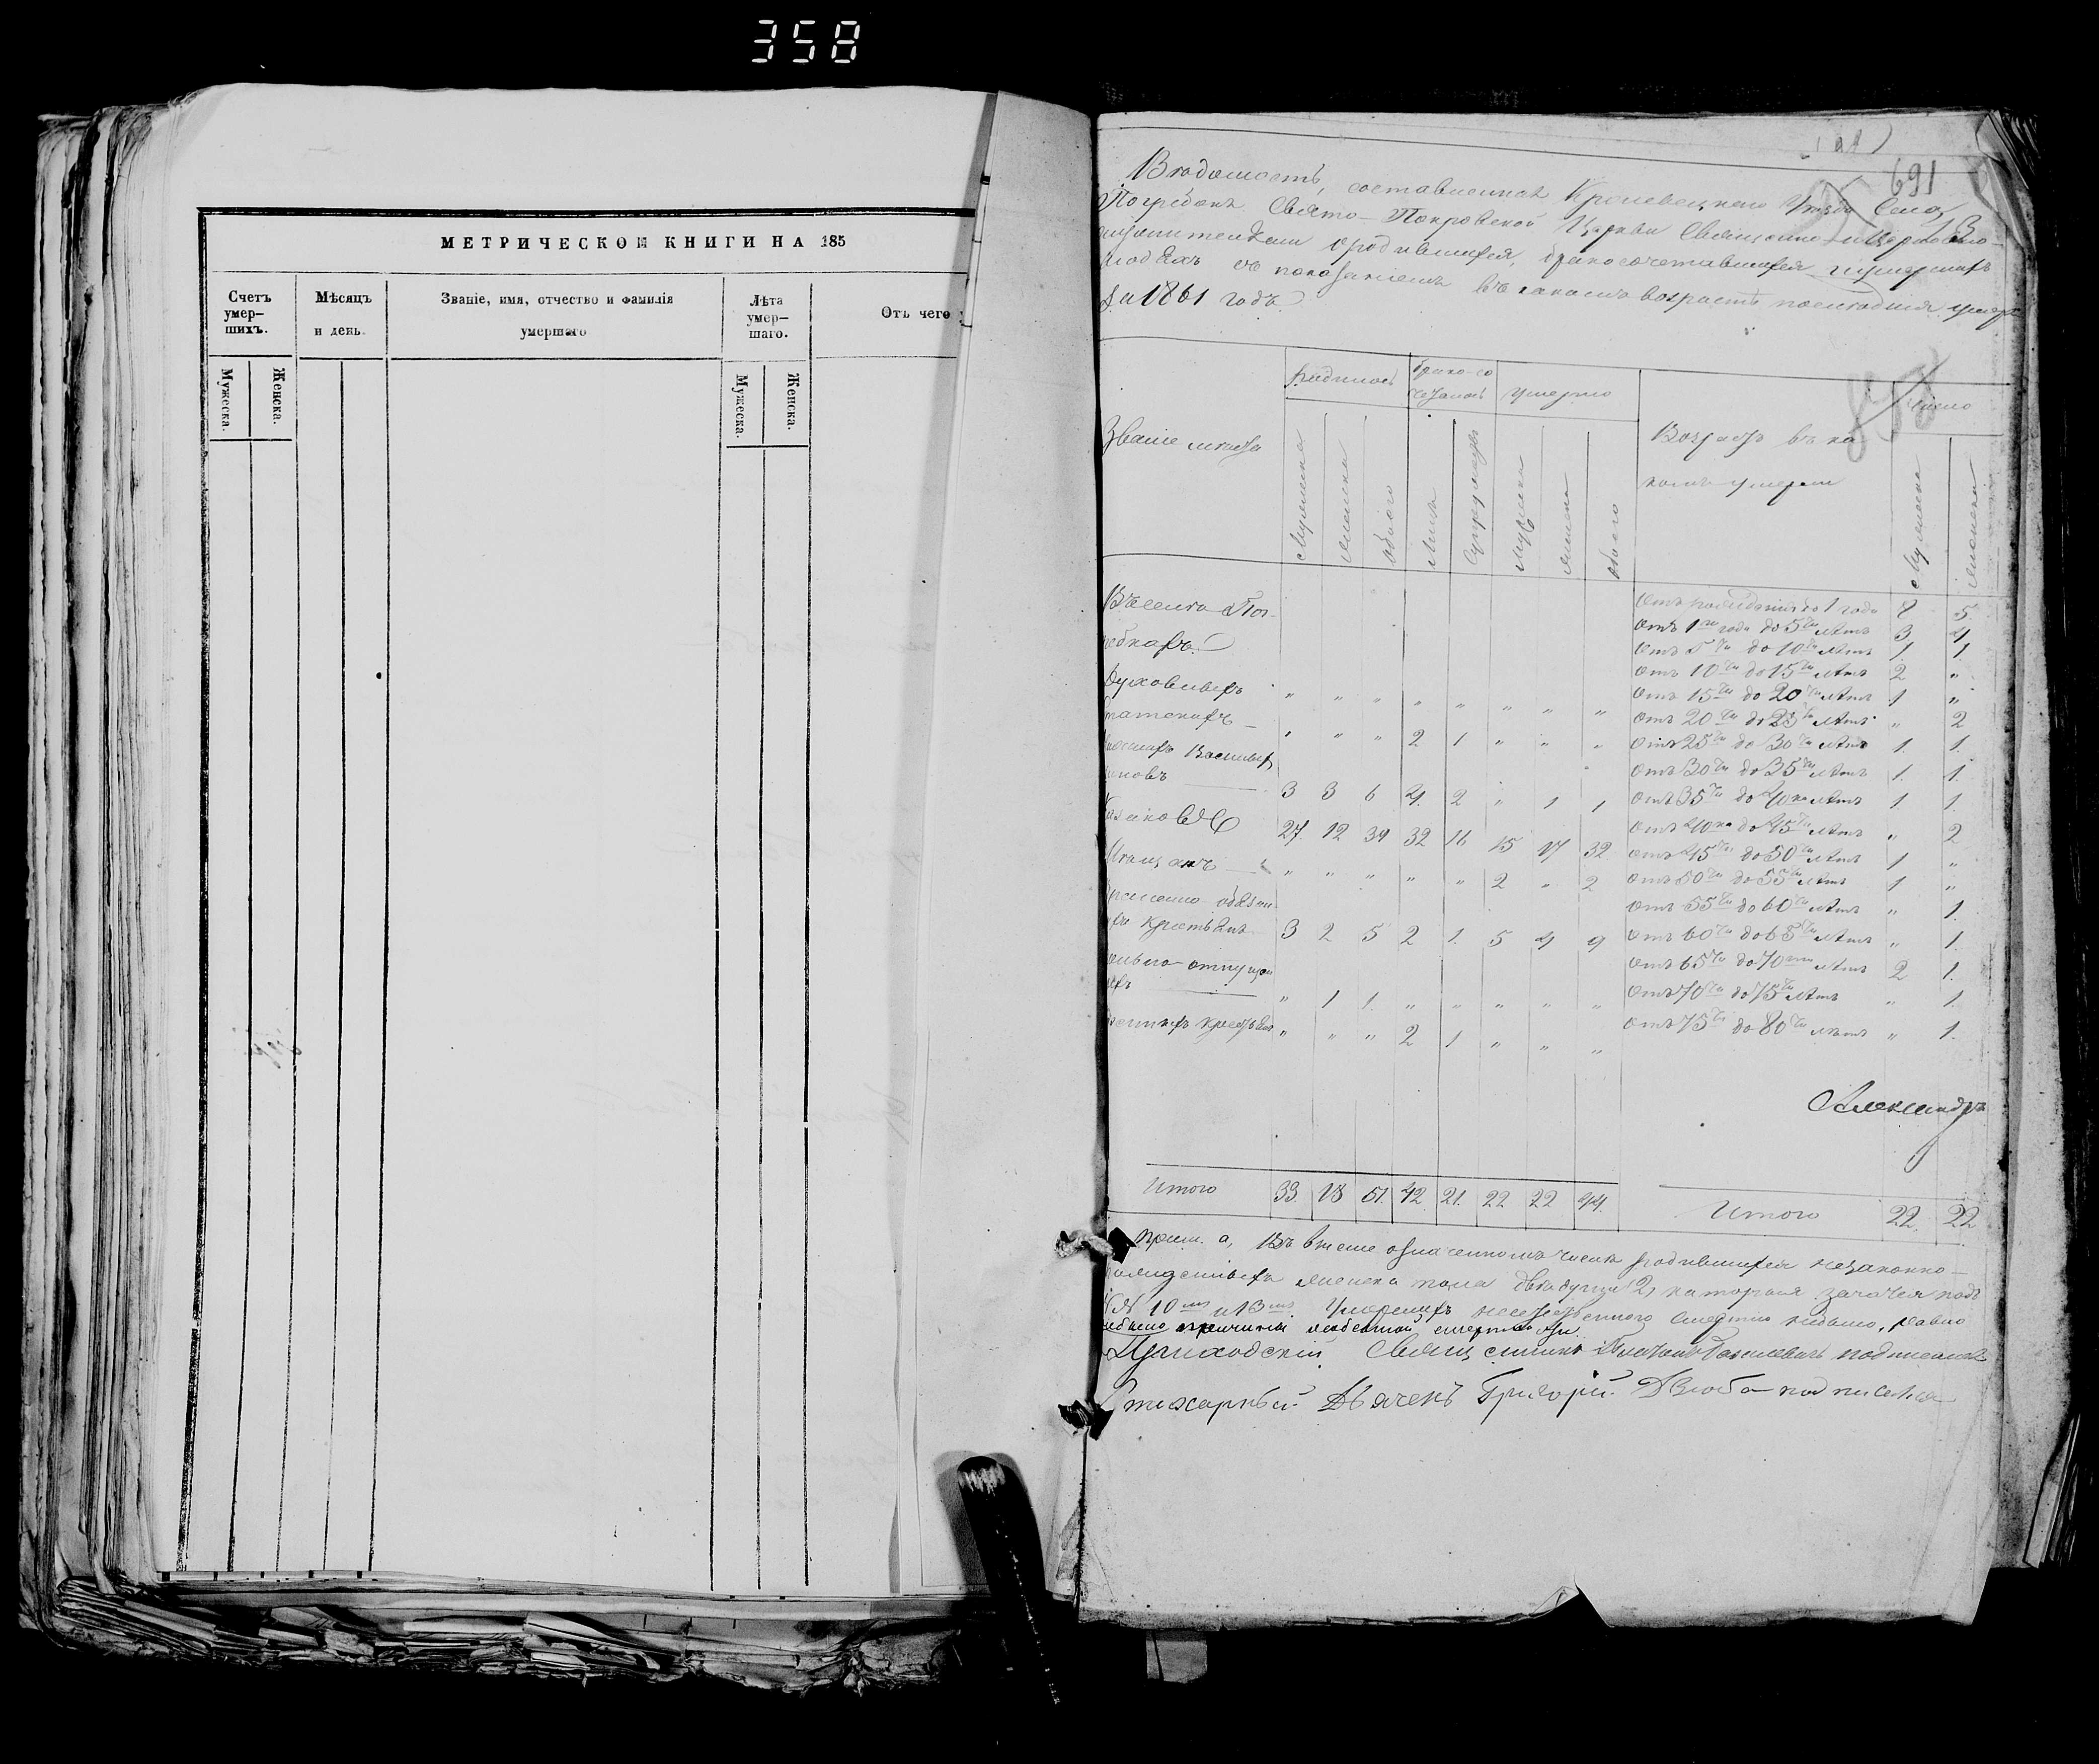 358
МЕТРИЧЕСКОЙ КНИГИ НА 185
Счетъ умер–шихъ.
Мужеска.
Женска.
Мѣсяцъ и день.
Званіе, имя, отчество и фамилія умершаго
Лѣта умер–шаго.
Мужеска.
Женска.
Отъ чего
691
Вѣдомость, составленная Кролевецкаго Уѣзда Села
Погребокъ Свято-Покровской Церкви Священно-и Церковно-
о родившихся, бракосочетавшихся и умершихъ
съ показаніемъ въ какомъ возрастѣ послѣдніе
За 1861 годъ.
Званіе
Родилось
Брако-со
четалось
Умерло
Возрастъ въ ка
комъ умерли
Число
Мужеска
Женска
Обоего
Лица
Супружествъ
Мужеска
Женска
Обоего
Мужеска
Женска
Въ селѣ Пог-
ребкахъ.
Духовныхъ " " " " " " " "
" " " 2 1 " " "
3 3 6 4 2 " 1 1
Казаковъ 27 12 39 32 16 15 17 32
Мѣщанъ " " " " " 2 " 2
Временно-обязан
крестьянъ 3 2 5 2 1 5 4 9
" 1 1 " " " " "
" " " 2 1 " " "
Отъ рожденія до 1 года 8 5
Отъ 1го года до 5ти лѣтъ 3 4
Отъ 5ти до 10ти лѣтъ 1 1
Отъ 10ти до 15ти лѣтъ 2 "
Отъ 15ти до 20ти лѣтъ 1 "
Отъ 20ти до 25ти лѣтъ " 2
Отъ 25ти до 30ти лѣтъ 1 1
Отъ 30ти до 35ти лѣтъ 1 1
Отъ 35ти до 40ка лѣтъ 1 1
Отъ 40ка до 45ти лѣтъ " 2
Отъ 45ти до 50ти лѣтъ 1 "
Отъ 50ти до 55ти лѣтъ 1 "
Отъ 55ти до 60ти лѣтъ " 1
Отъ 60ти до 65ти лѣтъ " 1
Отъ 65ти до 70ти лѣтъ 2 1
Отъ 70ти до 75ти лѣтъ " 1
Отъ 75ти до 80ти лѣтъ " 1
Александръ
Итого 33 18 51 42 21 22 22 44
Итого 22 22
Прим. а, Въ выше означенномъ числѣ родившихся незаконно-
женска пола двѣ души 2,
10 и 13 Умершихъ смертію небыло, равно
небыло причины
Приходскій Священникъ подписался
Стихарный Дьячекъ Григорій Дзюба подписался